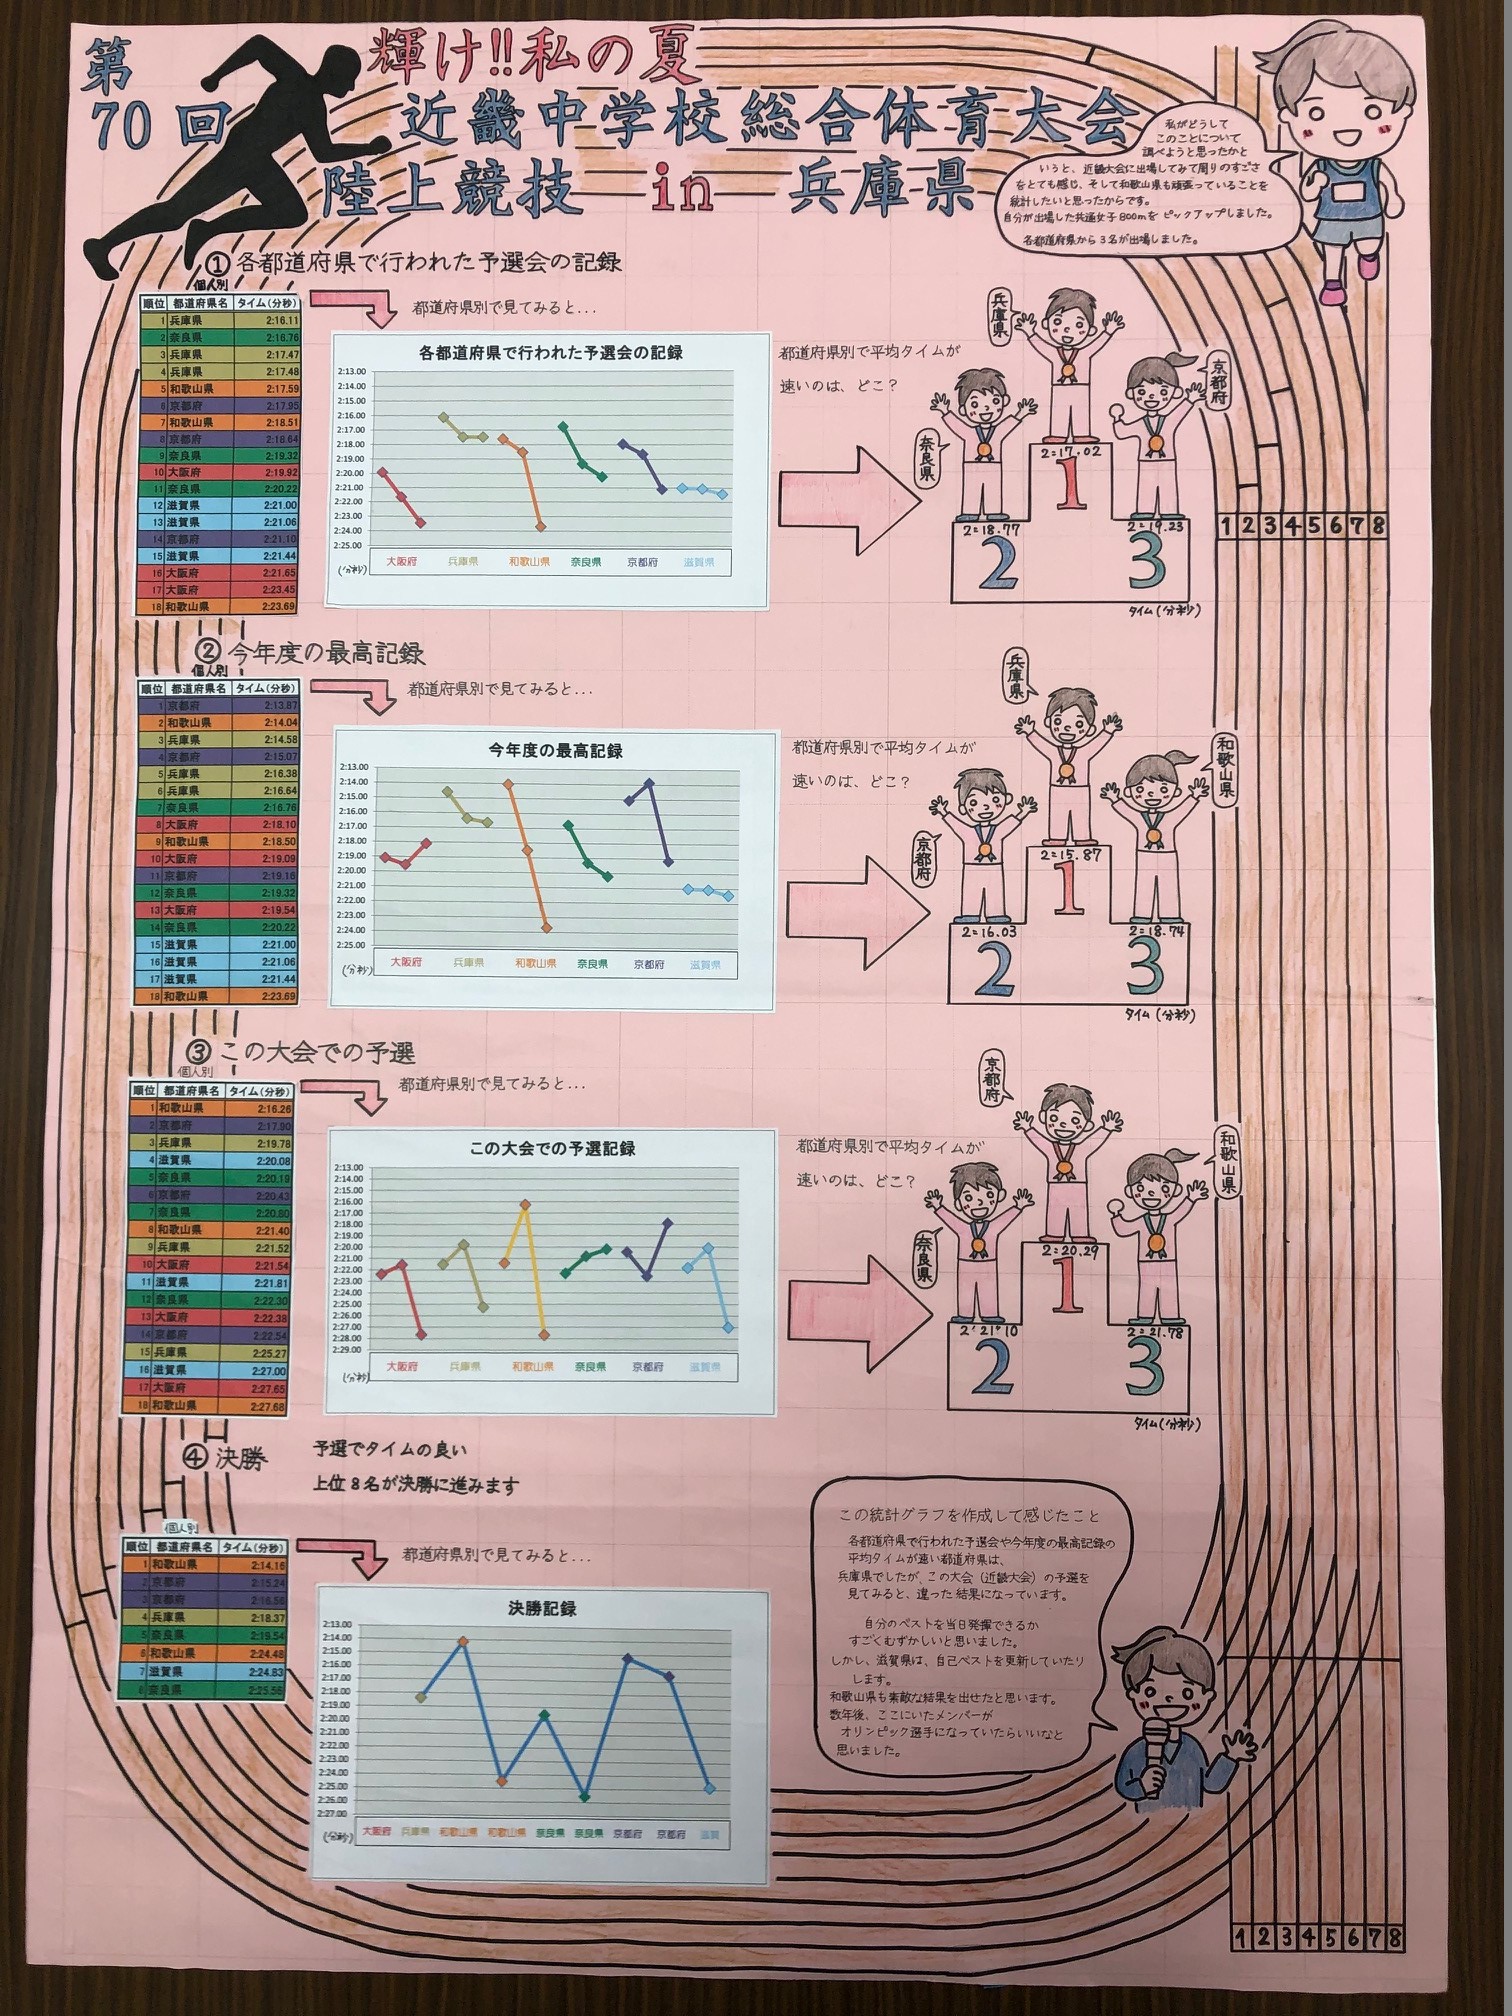 第
70回
輝け!!私の夏
近畿中学校総合体育大会
陸上競技 in 兵庫県
私がどうして
このことについて
調べようと思ったかと
いうと、近畿大会に出場してみて周りのすごさ
をとても感じ、そして和歌山県も頑張っていることを
統計したいと思ったからです。
自分が出場した共通女子800mを ピックアップしました。
各都道府県から3名が出場しました。
①各都道府県で行われた予選会の記録
個人別
順位 都道府県名 タイム(分秒)
1 兵庫県 2:16.11
2 奈良県 2:16.76
3 兵庫県 2:17.47
4 兵庫県 2:17.48
5 和歌山県 2:17.59
6 京都府 2:17.95
7 和歌山県 2:18.51
8 京都府 2:18.64
9 奈良県 2:19.32
10 大阪府 2:19.92
11 奈良県 2:20.22
12 滋賀県 2:21.00
13 滋賀県 2:21.06
14 京都府 2:21.10
15 滋賀県 2:21.44
16 大阪府 2:21.65
17 大阪府 2:23.45
18 和歌山県 2:23.69
都道府県別で見てみると...
各都道府県で行われた予選会の記録
2:13.00
2:14.00
2:15.00
2:16.00
2:17.00
2:18.00
2:19.00
2:20.00
2:21.00
2:22.00
2:23.00
2:24.00
2:25.00
(分秒)
大阪府 兵庫県 和歌山県 奈良県 京都府 滋賀県
都道府県別で平均タイムが
速いのは、どこ?
兵庫県
奈良県
京都府
2:17.02
1
2:18.77
2
2:19.23
3
タイム(分秒)
1 2 3 4 5 6 7 8
②今年度の最高記録
個人別
順位 都道府県名 タイム(分秒)
1 京都府 2:13.87
2 和歌山県 2:14.04
3 兵庫県 2:14.58
4 京都府 2:15.07
5 兵庫県 2:16.38
6 兵庫県 2:16.64
7 奈良県 2:16.76
8 大阪府 2:18.10
9 和歌山県 2:18.50
10 大阪府 2:19.09
11 京都府 2:19.16
12 奈良県 2:19.32
13 大阪府 2:19.54
14 奈良県 2:20.22
15 滋賀県 2:21.00
16 滋賀県 2:21.06
17 滋賀県 2:21.44
18 和歌山県 2:23.69
都道府県別で見てみると...
今年度の最高記録
2:13.00
2:14.00
2:15.00
2:16.00
2:17.00
2:18.00
2:19.00
2:20.00
2:21.00
2:22.00
2:23.00
2:24.00
2:25.00
(分秒)
大阪府 兵庫県 和歌山県 奈良県 京都府 滋賀県
都道府県別で平均タイムが
速いのは、どこ?
兵庫県
京都府
和歌山県
2:15.87
1
2:16.03
2
2:18.74
3
タイム(分秒)
③この大会での予選
個人別
順位 都道府県名 タイム(分秒)
1 和歌山県 2:16.26
2 京都府 2:17.90
3 兵庫県 2:19.78
4 滋賀県 2:20.08
5 奈良県 2:20.19
6 京都府 2:20.43
7 奈良県 2:20.80
8 和歌山県 2:21.40
9 兵庫県 2:21.52
10 大阪府 2:21.54
11 滋賀県 2:21.81
12 奈良県 2:22.30
13 大阪府 2:22.38
14 京都府 2:22.54
15 兵庫県 2:25.27
16 滋賀県 2:27.00
17 大阪府 2:27.65
18 和歌山県 2:27.68
都道府県別で見てみると...
この大会での予選記録
2:13.00
2:14.00
2:15.00
2:16.00
2:17.00
2:18.00
2:19.00
2:20.00
2:21.00
2:22.00
2:23.00
2:24.00
2:25.00
2:26.00
2:27.00
2:28.00
2:29.00
(分秒)
大阪府 兵庫県 和歌山県 奈良県 京都府 滋賀県
都道府県別で平均タイムが
速いのは、どこ?
京都府
奈良県
和歌山県
2:20.29
1
2:21.10
2
2:21.78
3
タイム(分秒)
④決勝
予選でタイムの良い
上位8名が決勝に進みます
個人別
順位 都道府県名 タイム(分秒)
1 和歌山県 2:14.16
2 京都府 2:15.24
3 京都府
4 兵庫県 2:18.37
5 奈良県 2:19.54
6 和歌山県 2:24.48
7 滋賀県 2:24.83
8 奈良県 2:25.56
都道府県別で見てみると...
決勝記録
2:13.00
2:14.00
2:15.00
2:16.00
2:17.00
2:18.00
2:19.00
2:20.00
2:21.00
2:22.00
2:23.00
2:24.00
2:25.00
2:26.00
2:27.00
(分秒)
大阪府 兵庫県 和歌山県 和歌山県 奈良県 奈良県 京都府 京都府 滋賀
この統計グラフを作成して感じたこと
各都道府県で行われた予選会や今年度の最高記録の
平均タイムが速い都道府県は、
兵庫県でしたが、この大会(近畿大会)の予選を
見てみると、違った結果になっています。
自分のベストを当日発揮できるか
すごくむずかしいと思いました。
しかし、滋賀県は、自己ベストを更新していたり
します。
和歌山県も素敵な結果を出せたと思います。
数年後、ここにいたメンバーが
オリンピック選手になっていたらいいなと
思いました。
1 2 3 4 5 6 7 8